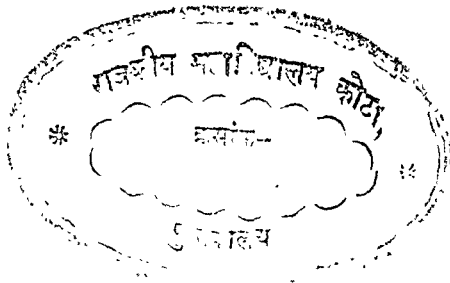 राजकीय महाविद्यालय कोटा,
क्रमांक--
पुस्तकालय